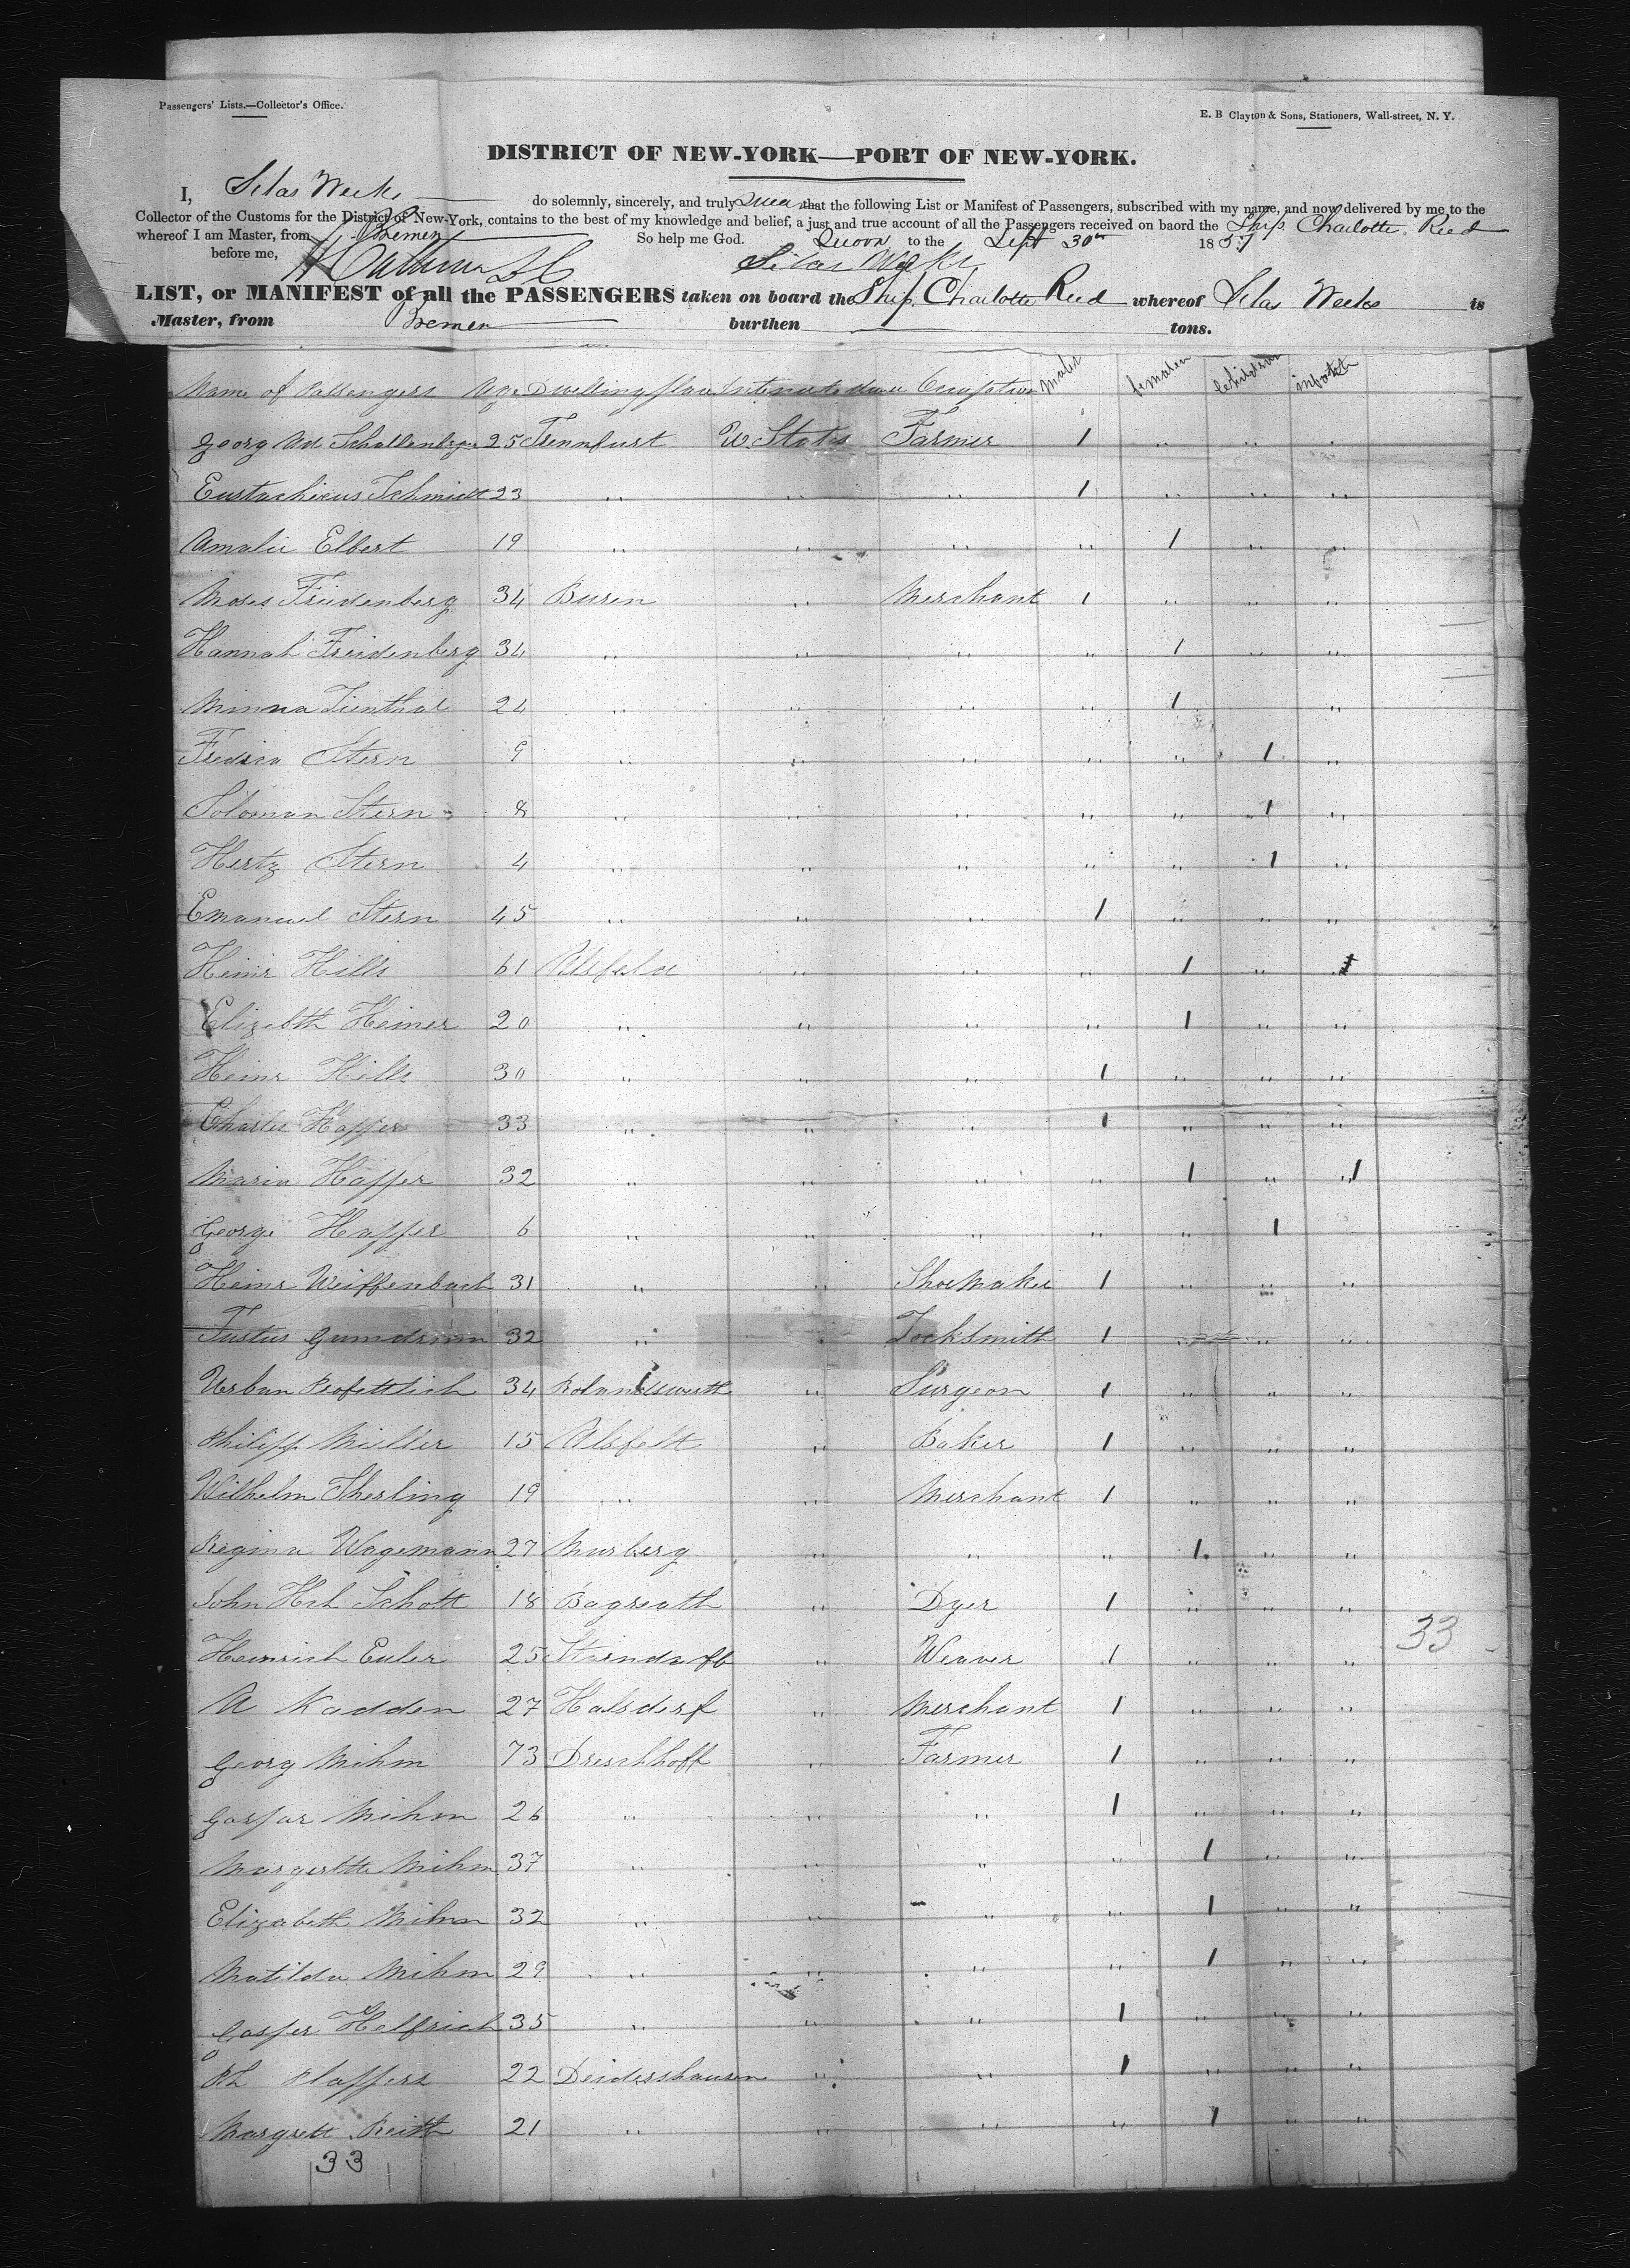 Passengers' Lists.—Collector's Office.
E. B Clayton & Sons, Stationers, Wall-street, N. Y.
DISTRICT OF NEW-YORK—PORT OF NEW-YORK.
I, Silas Weeks do solemnly, sincerely, and truly swear that the following List or Manifest of Passengers, subscribed with my name, and now delivered by me to the
Collector of the Customs for the District of New-York, contains to the best of my knowledge and belief, a just and true account of all the Passengers received on baord the Ship Charlotte Reed
whereof I am Master, from Bremen So help me God. Sworn to the Sept 30th 1857
before me, Silas Weeks
LIST, or MANIFEST of all the PASSENGERS taken on board the Ship Charlotte Reed whereof Silas Weeks is
Master, from Bremen burthen tons.
Name of Passengers Age Dwelling place Occupation males females children infants
Georg Ad Schallenberger 25 U. States Farmer 1 " " "
Eustachius Schmidt 23 " " " 1 " " "
Amalie Elbert 19 " " " " 1 " "
Moses Friedenberg 34 Buren " Merchant 1 " " "
Hannah Freidenberg 34 " " " " 1 " "
Minna Lienthal 24 " " " " 1 "
Stern 9 " " " " " 1 "
Soloman Stern 8 " " " " " 1 "
Hertz Stern 4 " " " " " 1 "
Emanuel Stern 45 " " " 1 " " "
Heinr Hills 61 Alsfeld " " " 1 "
Elizabth Heiner 20 " " " " 1 " "
Heinr Hills 30 " " " 1 " " "
Charles Happer 33 " " " 1 " " "
Maria Happer 32 " " " " 1 " 1
George Happer 6 " " " " " 1 "
Heinr Weiffenbach 31 " " Shoemaker 1 " " "
Justus 32 " " Locksmith 1 " " "
Urban 34 Rolandswerth " Surgeon 1 " " "
Philipp Miller 15 Alsfelt " Baker 1 " " "
Wilhelm Sherling 19 " " Merchant 1 " " "
Regina Wagemann 27 Murberg " " " 1 " "
John Hch Schott 18 Bagreath " Dyer 1 " " "
33
Heinrich Euler 25 " Weaver 1 " " "
A Kadden 27 Halsdorf " Merchant 1 " " "
Georg Mihm 73 Dreschhoff " Farmer 1 " " "
Gaspar Mihm 26 " " " 1 " " "
Margertte Mihm 37 " " " " 1 " "
Elizabeth Mihm 32 " " " " 1 " "
Matilda Mihm 29 " " " " 1 " "
Gasper Helfrich 35 " " " 1 " " "
Ph Plappers 22 Deidershausen " " 1 " " "
Margrett Reith 21 " " " " 1 " "
33